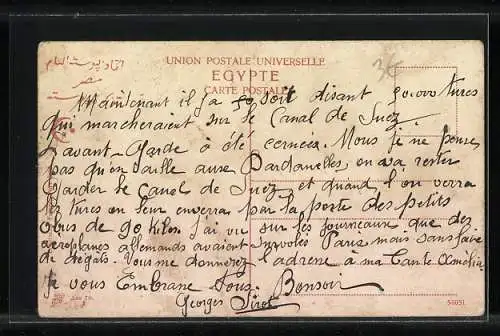 اتحاد بوستة العام
مصر
UNION POSTALE UNIVERSELLE
EGYPTE
CARTE POSTALE
3€
Maintenant il y a soit disant 50.000 turcs
qui marcheraient sur le Canal de Suez
L'avant-Garde a été cernée. Nous je ne pense
pas qu'on aille aux Dardanelles, on va rester
Garder le Canal de Suez et quand l'on verra
les turcs on leur enverra par la poste des petits
obus de 90 kilos j'ai vu sur les journeaux que des
aeroplanes allemands avaient survolés Paris mais sans faire
de dégats. Vous me donnerez l'adresse à ma Tante Amélie
Je vous Embrasse Tous. Bonsoir
Georges
51051